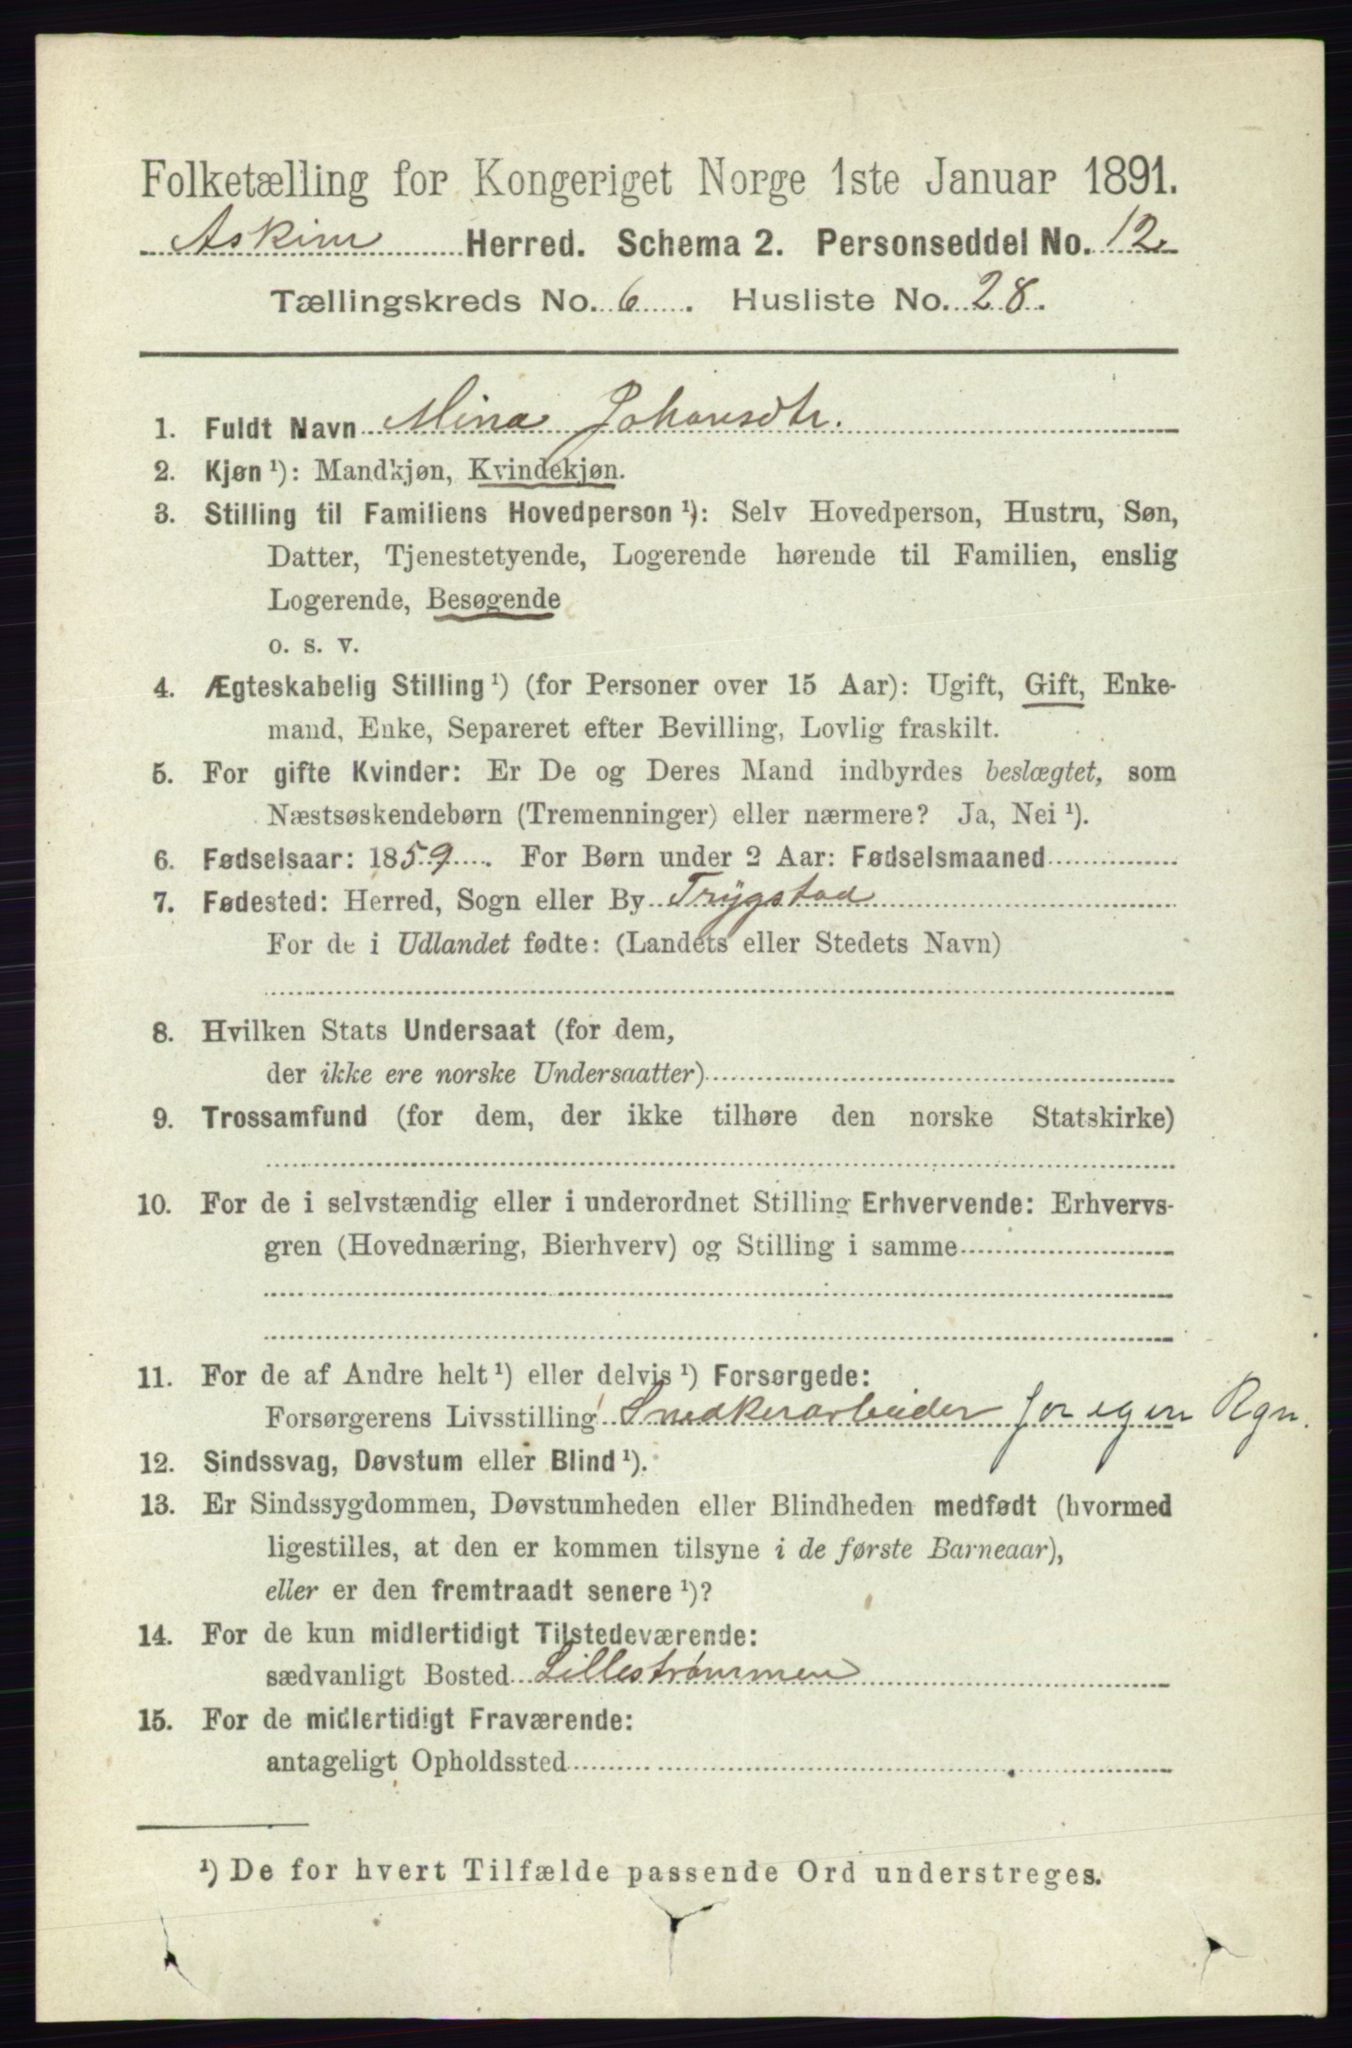 Folketælling for Kongeriget Norge 1ste Januar 1891.
Askim Herred. Schema 2. Personseddel No. 12.
Tællingskreds No. 6. Husliste No. 28.
1. Fuldt Navn Mina Johansdtr.
2. Kjøn ¹): Mandkjøn, Kvindekjøn.
3. Stilling til Familiens Hovedperson ¹): Selv Hovedperson, Hustru, Søn,
Datter, Tjenestetyende, Logerende hørende til Familien, enslig
Logerende, Besøgende
o. s. v.
4. Ægteskabelig Stilling ¹) (for Personer over 15 Aar): Ugift, Gift, Enke-
mand, Enke, Separeret efter Bevilling, Lovlig fraskilt.
5. For gifte Kvinder: Er De og Deres Mand indbyrdes beslægtet, som
Næstsøskendebørn (Tremenninger) eller nærmere? Ja, Nei ¹).
6. Fødselsaar: 1859. For Børn under 2 Aar: Fødselsmaaned
7. Fødested: Herred, Sogn eller By Trygstad
For de i Udlandet fødte: (Landets eller Stedets Navn)
8. Hvilken Stats Undersaat (for dem,
der ikke ere norske Undersaatter)
9. Trossamfund (for dem, der ikke tilhøre den norske Statskirke)
10. For de i selvstændig eller i underordnet Stilling Erhvervende: Erhvervs-
gren (Hovednæring, Bierhverv) og Stilling i samme
11. For de af Andre helt ¹) eller delvis ¹) Forsørgede:
Forsørgerens Livsstilling Snedkerarbeider for egen Rgn.
12. Sindssvag, Døvstum eller Blind ¹).
13. Er Sindssygdommen, Døvstumheden eller Blindheden medfødt (hvormed
ligestilles, at den er kommen tilsyne i de første Barneaar),
eller er den fremtraadt senere ¹)?
14. For de kun midlertidigt Tilstedeværende:
sædvanligt Bosted Lillestrømmen
15. For de midlertidigt Fraværende:
antageligt Opholdssted
¹) De for hvert Tilfælde passende Ord understreges.